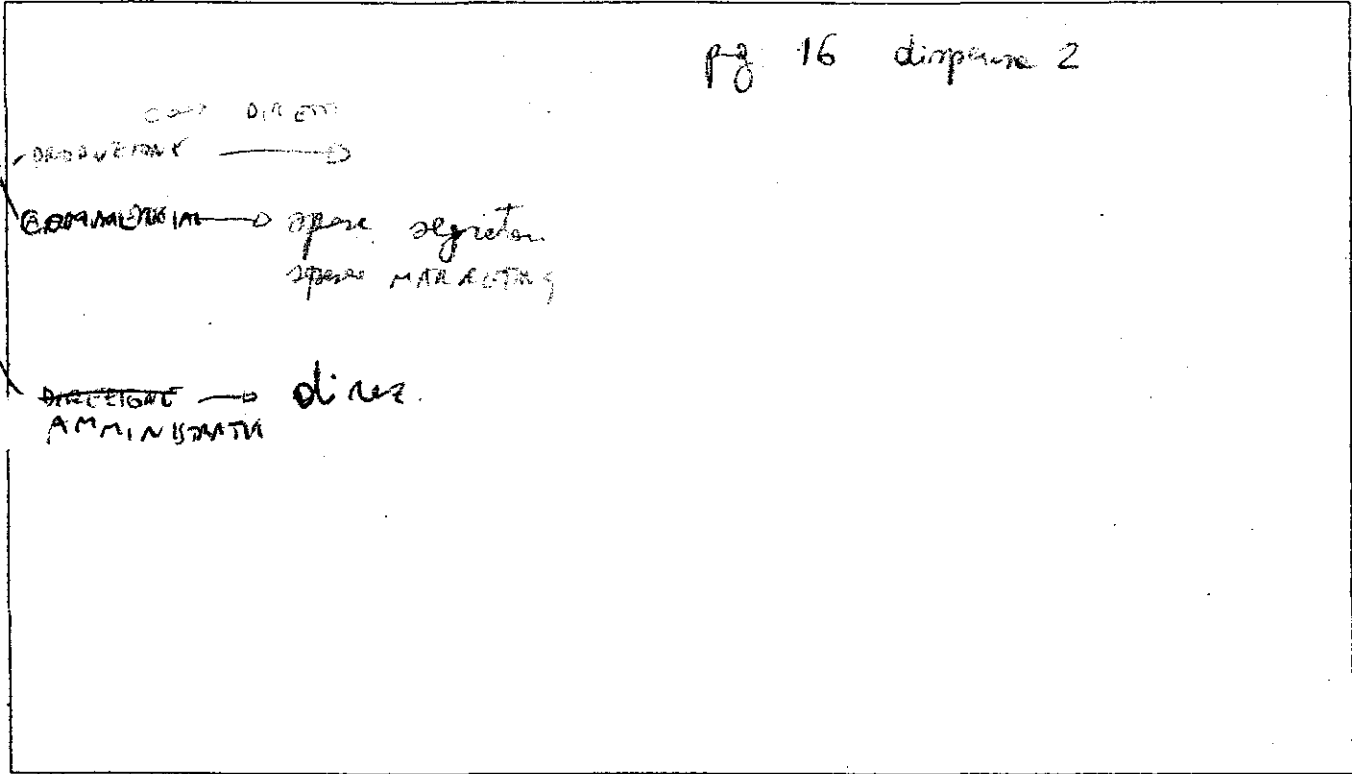 pg 16 dispense 2
COSTI DIRETTI
PRODUZIONE
COMMERCIALI → spese segretar.
spese MARKETING
DIREZIONE → direz.
AMMINISTRATIVA